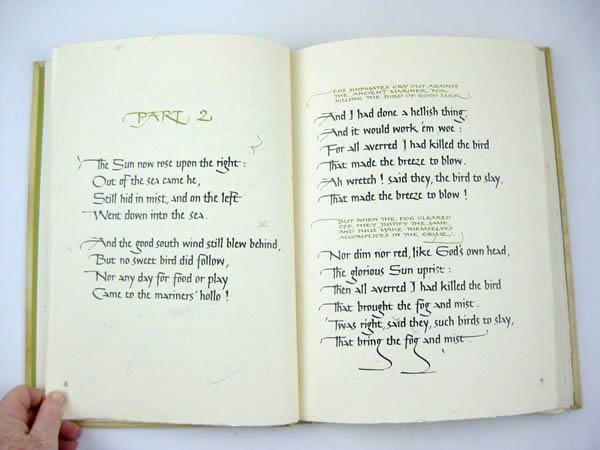 PART 2
The Sun now rose upon the right:
Out of the sea came he,
Still hid in mist, and on the left
Went down into the sea.
And the good south wind still blew behind,
But no sweet bird did follow,
Nor any day for food or play
Came to the mariners' hollo!
8
HIS SHIPMATES CRY OUT AGAINST
THE ANCIENT MARINER, FOR
KILLING THE BIRD OF GOOD LUCK.
And I had done a hellish thing,
And it would work 'em woe:
For all averred I had killed the bird
That made the breeze to blow.
Ah wretch! said they, the bird to slay,
That made the breeze to blow!
BUT WHEN THE FOG CLEARED
OFF, THEY JUSTIFY THE SAME,
AND THUS MAKE THEMSELVES
ACCOMPLICES IN THE CRIME.
Nor dim nor red, like God's own head,
The glorious Sun uprist:
Then all averred I had killed the bird
That brought the fog and mist.
'Twas right, said they, such birds to slay,
That bring the fog and mist.
9